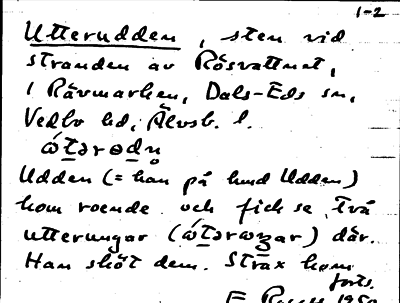 1-2
Utterudden, sten vid
stranden av Rösvattnet,
i Rävmarken, Dals-Eds sn,
Vedbo hd, Älvsb. l.
Udden (= han på hund Udden)
kom roende och fick se två
utterungar där.
Han sköt dem. Strax kom
forts.
E